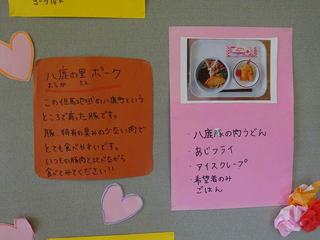 八鹿の里 ポーク
ようか さと
この但馬地域の八鹿町という
ところで育った豚です。
豚 特有の臭みの少ない肉で
とても食べやすいです。
いつもの豚肉と比べながら
食べてみてください!!
・八鹿豚の肉うどん
・あじフライ
・アイスクレープ
・希望者のみ
ごはん